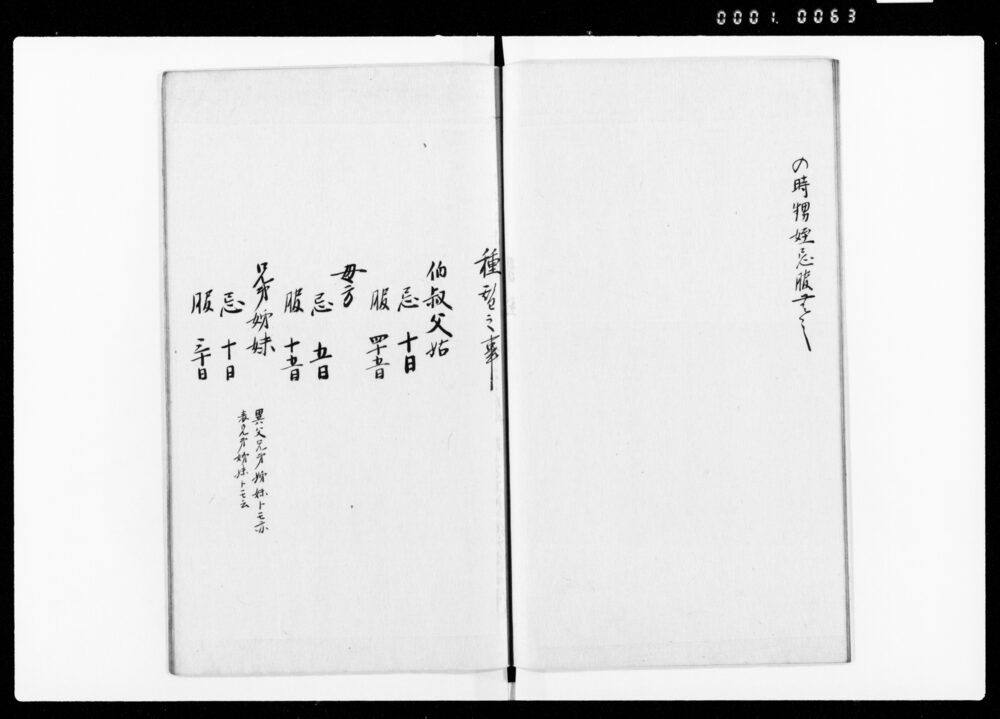 0001. 0063
の時甥姪忌服無之
種替之事
伯叔父姑
忌 十日
服 四十五日
母方
忌 五日
服 十五日
兄弟姉妹
異父兄弟姉妹トモ云
表兄弟姉妹トモ云
忌 十日
服 三十日